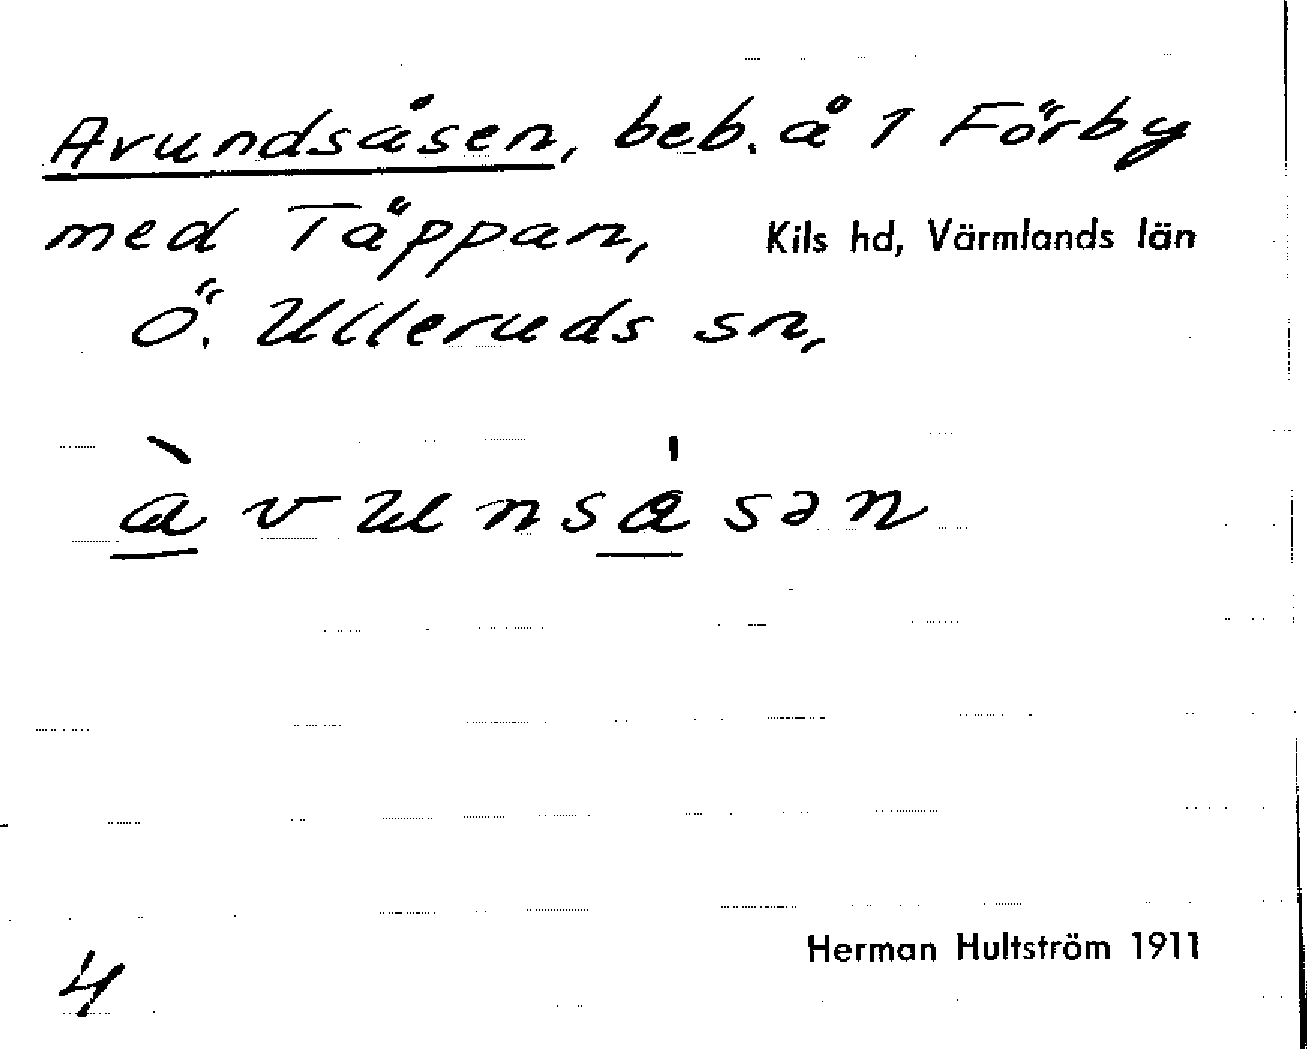 Avundsåsen, beb. å 1 Förby
med Täppan, Kils hd, Värmlands län
Ö. Ulleruds sn,
àvunsåsən
Herman Hultström 1911
4